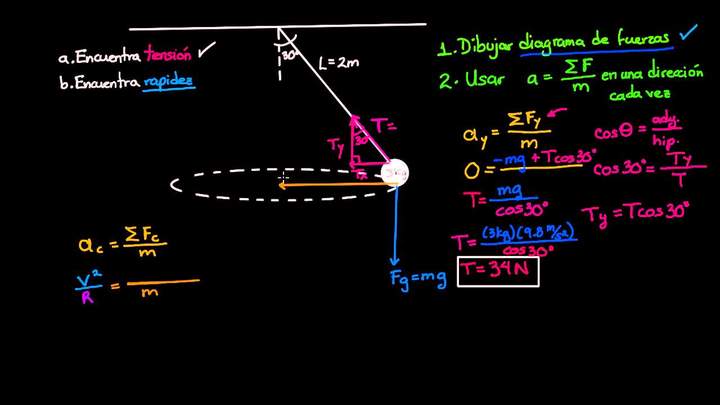 a. Encuentra tensión ✓
b. Encuentra rapidez
30°
L = 2m
T =
Ty
30
Tx
Fg = mg
ac = ΣFc / m
v² / R = / m
1. Dibujar diagrama de fuerzas ✓
2. Usar a = ΣF / m en una dirección
cada vez
ay = ΣFy / m
0 = -mg + Tcos30°
T = mg / cos30°
T = (3kg)(9.8 m/s²) / cos30°
T = 34 N
cosθ = ady. / hip.
cos30° = Ty / T
Ty = Tcos30°